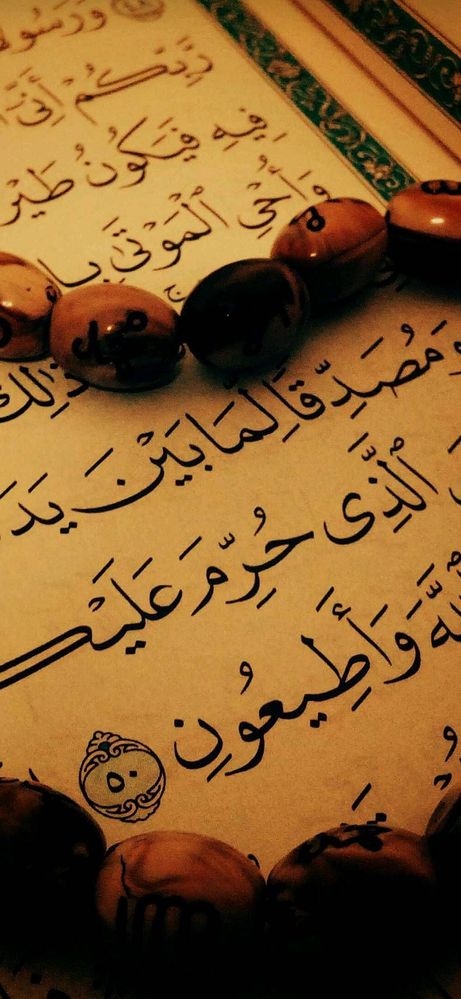 ٤٨ وَرَسُولًا
رَّبِّكُمْ أَنِّي
فِيهِ فَيَكُونُ طَيْرًا
وَأُحْيِ ٱلْمَوْتَىٰ
ذَٰلِكَ
وَمُصَدِّقًا لِّمَا بَيْنَ يَدَ
ٱلَّذِى حُرِّمَ عَلَيْكـ
ٱللَّهَ وَأَطِيعُونِ ٥٠